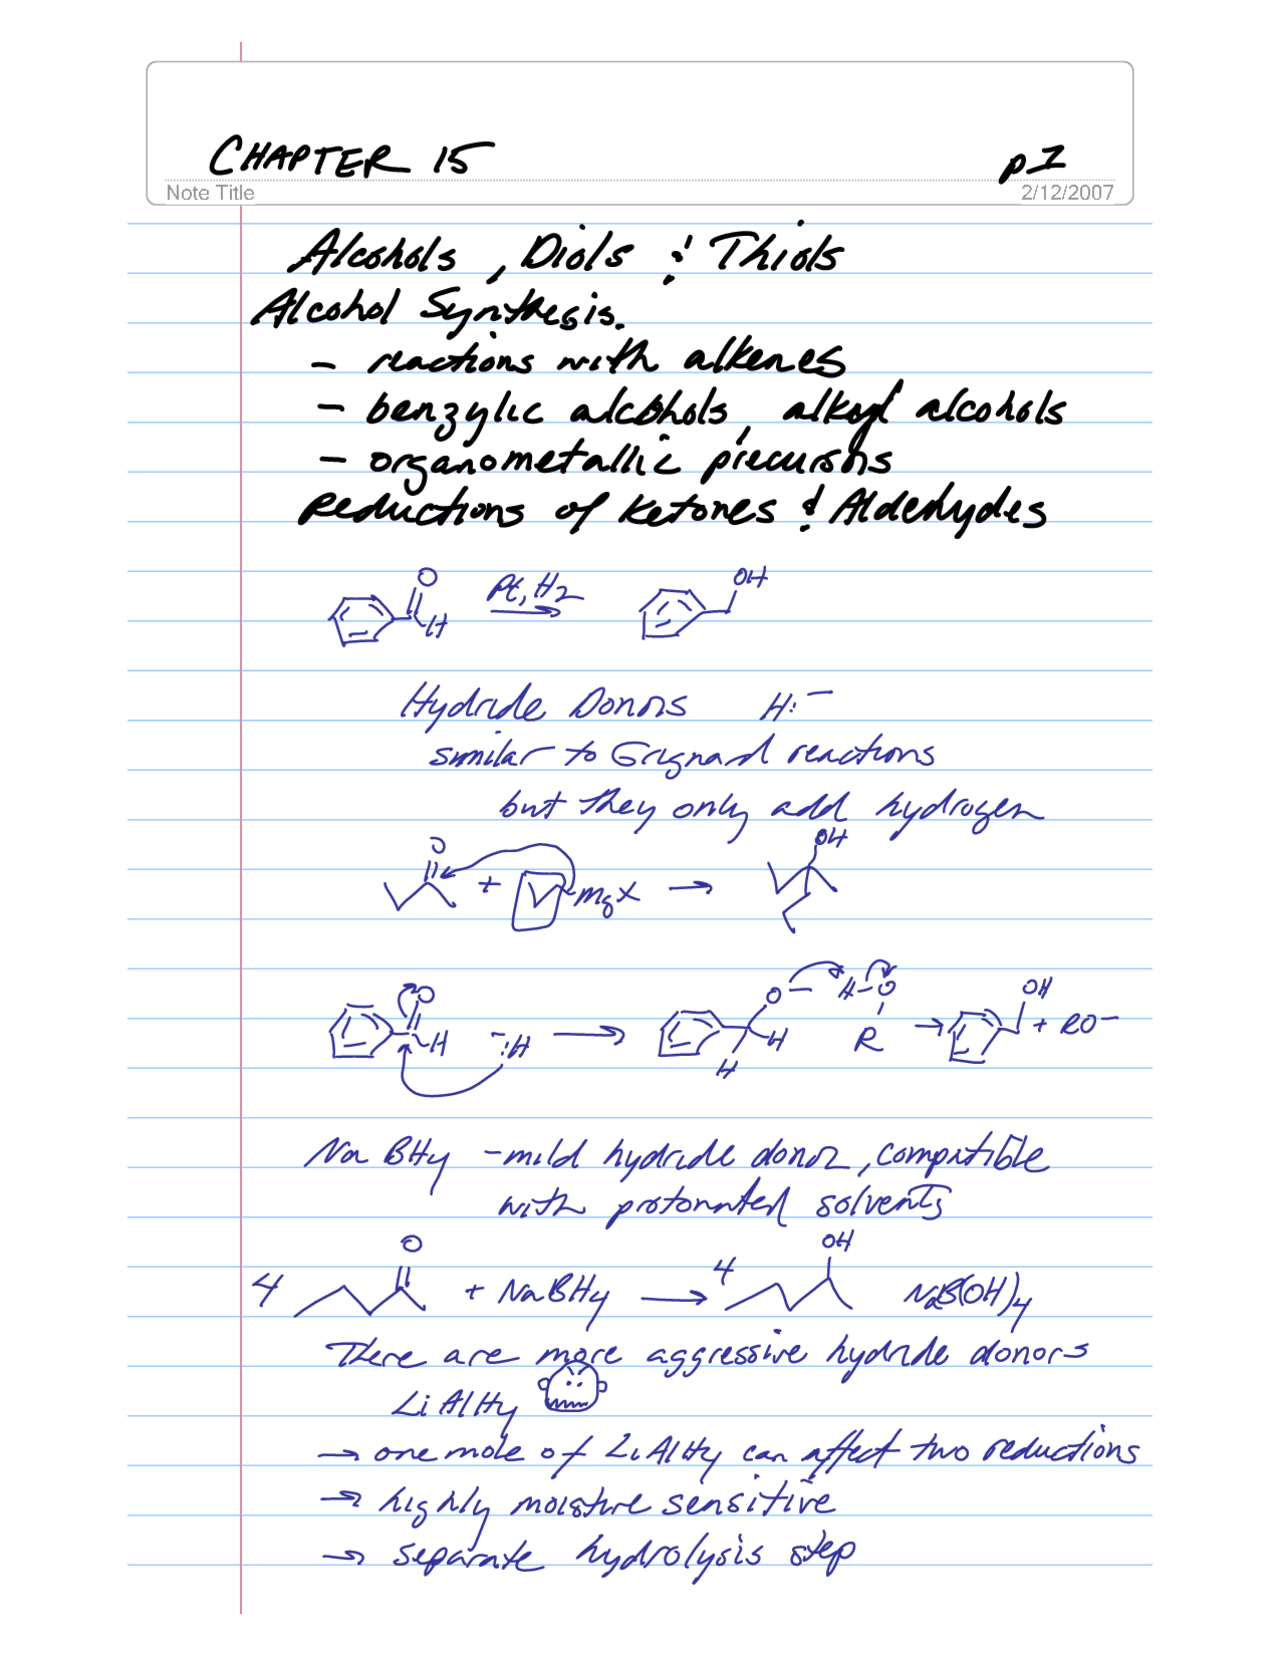 CHAPTER 15 p I
Note Title 2/12/2007
Alcohols, Diols & Thiols
Alcohol Synthesis.
- reactions with alkenes
- benzylic alcohols, alkyl alcohols
- organometallic precursors
Reductions of Ketones & Aldehydes
O H Pt, H2 OH
Hydride Donors H:⁻
similar to Grignard reactions
but they only add hydrogen
O + MgX → OH
O H ⁻:H → O⁻ H H H-O R → OH + RO⁻
NaBH4 - mild hydride donor, compatible
with protonated solvents
4 O + NaBH4 → 4 OH NaB(OH)4
There are more aggressive hydride donors
LiAlH4
→ one mole of LiAlH4 can affect two reductions
→ highly moisture sensitive
→ separate hydrolysis step